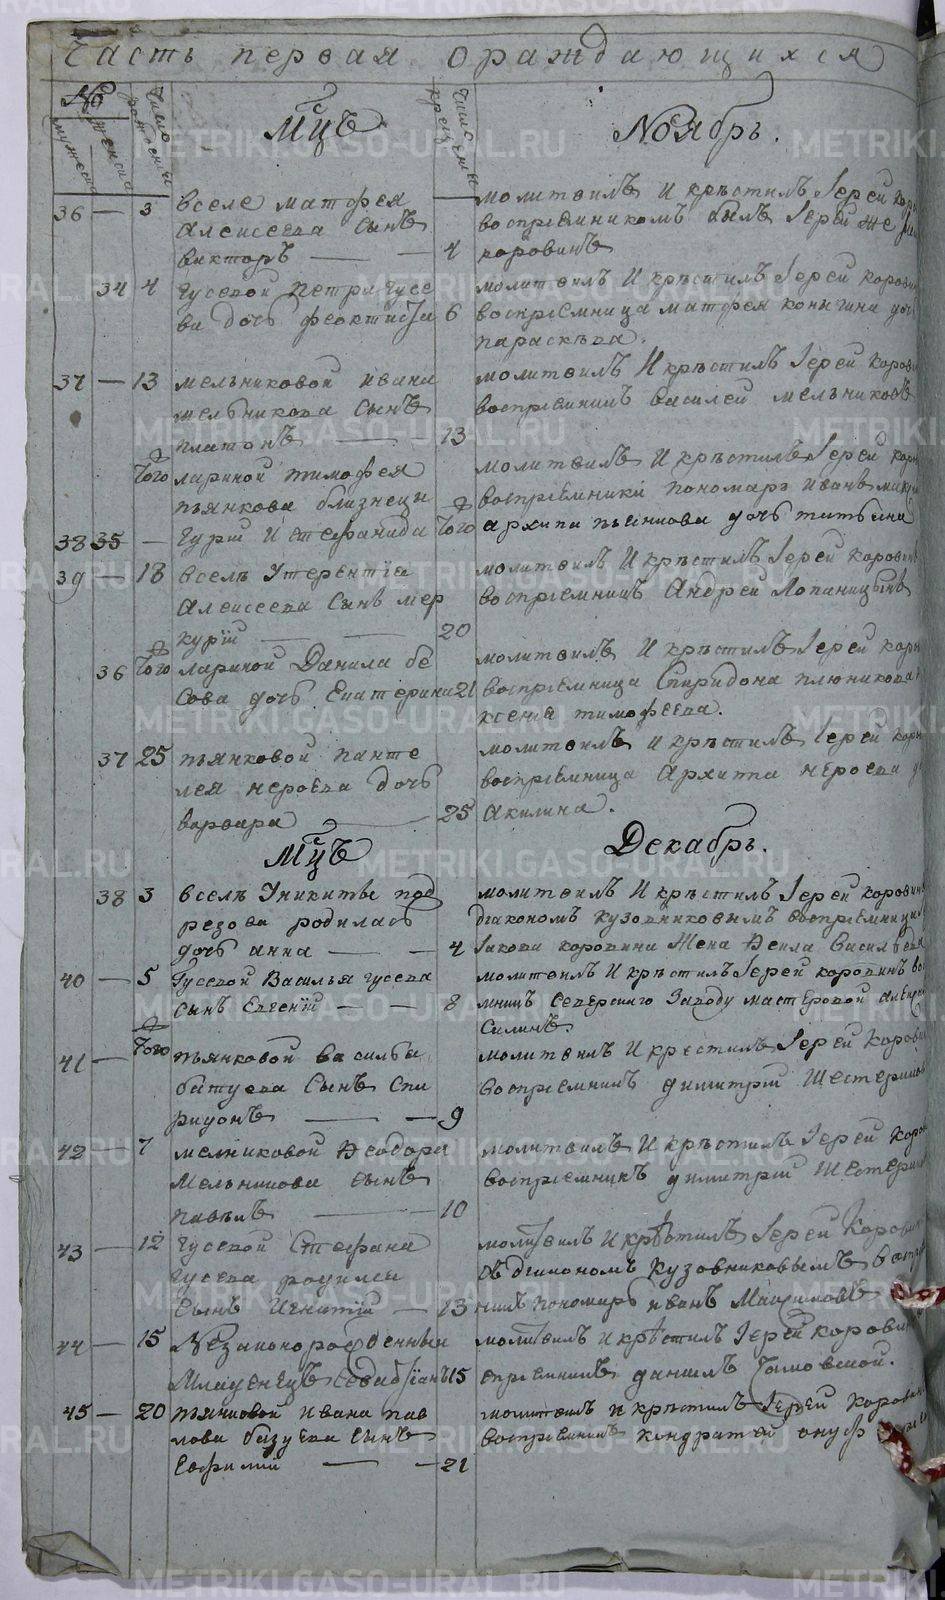 Часть первая ораждающихся
№
мужеска
женска
число рождения
Мцъ
число крещения
Ноябрь.
36 — 3 вселе матфея
Алексеева сынъ
викторъ — — 4
молитвилъ И крѣстилъ Iерей
воспрiемникомъ былъ Iерей же
коровинъ
34 4 Гусевой Петра гусе
ва дочь феоктиста 6
молитвилъ И крѣстилъ Iерей корови
воспрiемница матфея конычина доч
параскѣва.
37 — 13 мельниковой ивана
мельникова сынъ
платонъ — — 13
молитвилъ И крѣстилъ Iерей корови
воспрiемникъ василей мельниковъ
Того лариной тимофея
пьянкова близнецы
38 35 — Гурiй И стефанида Того
молитвилъ И крѣстилъ Iерей коров
воспрiемники пономарь иванъ
архипа пьянкова дочь татьяна
39 — 18 вселъ Утерентiя
Алексеева сынъ мер
курiй — — 20
молитвилъ И крѣстилъ Iерей коровин
воспрiемникъ Андрей Лопаницынъ
36 Того лариной Данила бе
сова дочь Екатерина 21
молитвилъ И крѣстилъ Iерей коров
воспрiемница Спиридона плюхнкова
ксенiя тимофеева.
37 25 пьянковой панте
лея нероева дочь
варвара — 25
молитвилъ и крѣстилъ Iерей коров
воспрiемница Архипа нероева д
акилина.
Мцъ
Декабрь.
38 3 вселъ Уникиты под
резова родилась
дочь анна — — 4
молитвилъ И крѣстилъ Iерей коровинъ
дiакономъ кузовниковымъ воспрiемница
Iакова коровина жена Васильева
40 — 5 Гусевой Василья гусева
сынъ Евгенiй — — 8
молитвилъ И крѣстилъ Iерей коровинъ вос
мникъ северского Заводу мастеровой
силинъ
41 — Того пьянковой василья
батуева сынъ спи
ридонъ — — 9
молитвилъ И крестилъ Iерей Корови
воспрiемникъ димитрiй Шестериков
42 — 7 мелниковой Феодора
Мельникова сынъ
павелъ — 10
молитвилъ И крѣстилъ Iерей Коров
воспрiемникъ димитрiй Шестерик
43 — 12 Гусевой Стефана
гусева родился
сынъ Игнатiй — 13
молитвилъ И крѣстилъ Iерей Корови
съ дiакономъ Кузовниковымъ воспрi
никъ пономарь иванъ Макаимовъ
44 — 15 Незаконорожденный
Младенецъ Севастiанъ 15
молитвилъ И крѣстилъ Iерей корови
спрiемникъ данилъ
45 — 20 пьянковой ивана пав
лова базуева сынъ
Ефимiй — — 21
молитвилъ и крѣстилъ Iерей Коровин
воспрiемникъ кондратей онуф
METRIKI.GASO-URAL.RU